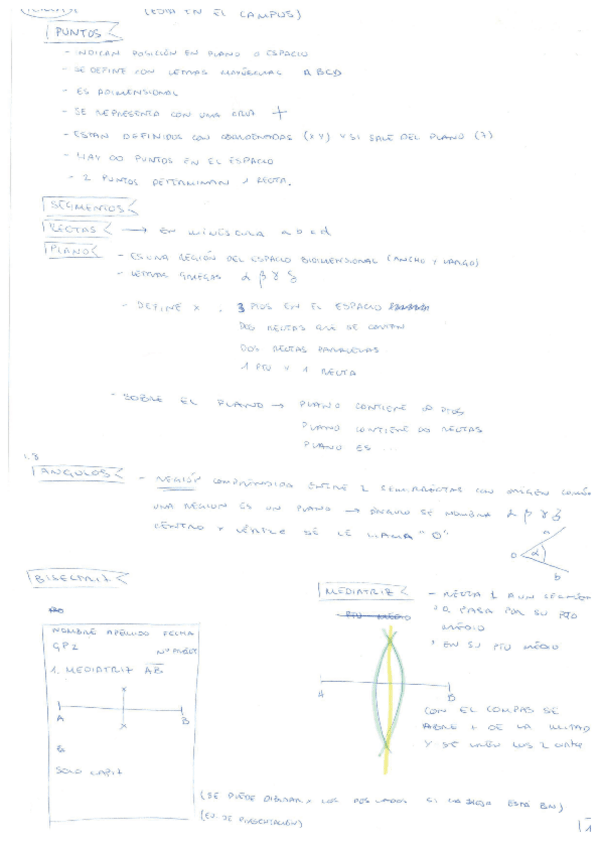 (ESTA EN EL CAMPUS)
PUNTOS
- INDICAN POSICIÓN EN PLANO O ESPACIO
- SE DEFINE CON LETRAS MAYÚSCULAS A B C D
- ES ADIMENSIONAL
- SE REPRESENTA CON UNA CRUZ +
- ESTAN DEFINIDOS CON COORDENADAS (X Y) Y SI SALE DEL PLANO (Z)
- HAY ∞ PUNTOS EN EL ESPACIO
- 2 PUNTOS DETERMINAN 1 RECTA.
SEGMENTOS
RECTAS → EN MINÚSCULA a b c d
PLANO - ES UNA REGIÓN DEL ESPACIO BIDIMENSIONAL (ANCHO Y LARGO)
- LETRAS GRIEGAS α β γ
- DEFINE X . 3 PTOS EN EL ESPACIO
DOS RECTAS QUE SE CORTAN
DOS RECTAS PARALELAS
1 PTO Y 1 RECTA
- SOBRE EL PLANO → PLANO CONTIENE ∞ PTOS
PLANO CONTIENE ∞ RECTAS
PLANO ES ...
1.8
ANGULOS - REGIÓN COMPRENDIDA ENTRE 2 SEMIRRECTAS CON ORIGEN COMÚN
UNA REGION ES UN PLANO → ÁNGULO SE NOMBRA α β γ
CENTRO Y VÉRTICE SE LE LLAMA "O"
a
O α
b
BISECTRIZ
MEDIATRIZ - RECTA ⊥ A UN SEGMENTO
PTO MEDIO
Q PASA POR SU PTO
MEDIO
EN SU PTO MEDIO
NOMBRE APELLIDO FECHA
GP2
1. MEDIATRIZ AB
A B
A B
CON EL COMPAS SE
ABRE + DE LA MITAD
Y SE UNEN LOS 2
SOLO LAPIZ
(SE PUEDE
(EJ. DE PRESENTACIÓN)
1